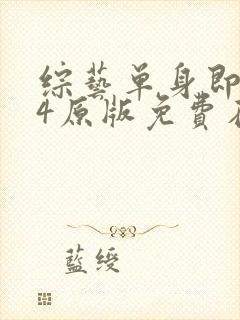 綜藝單身即
4原版免費在
藍綬